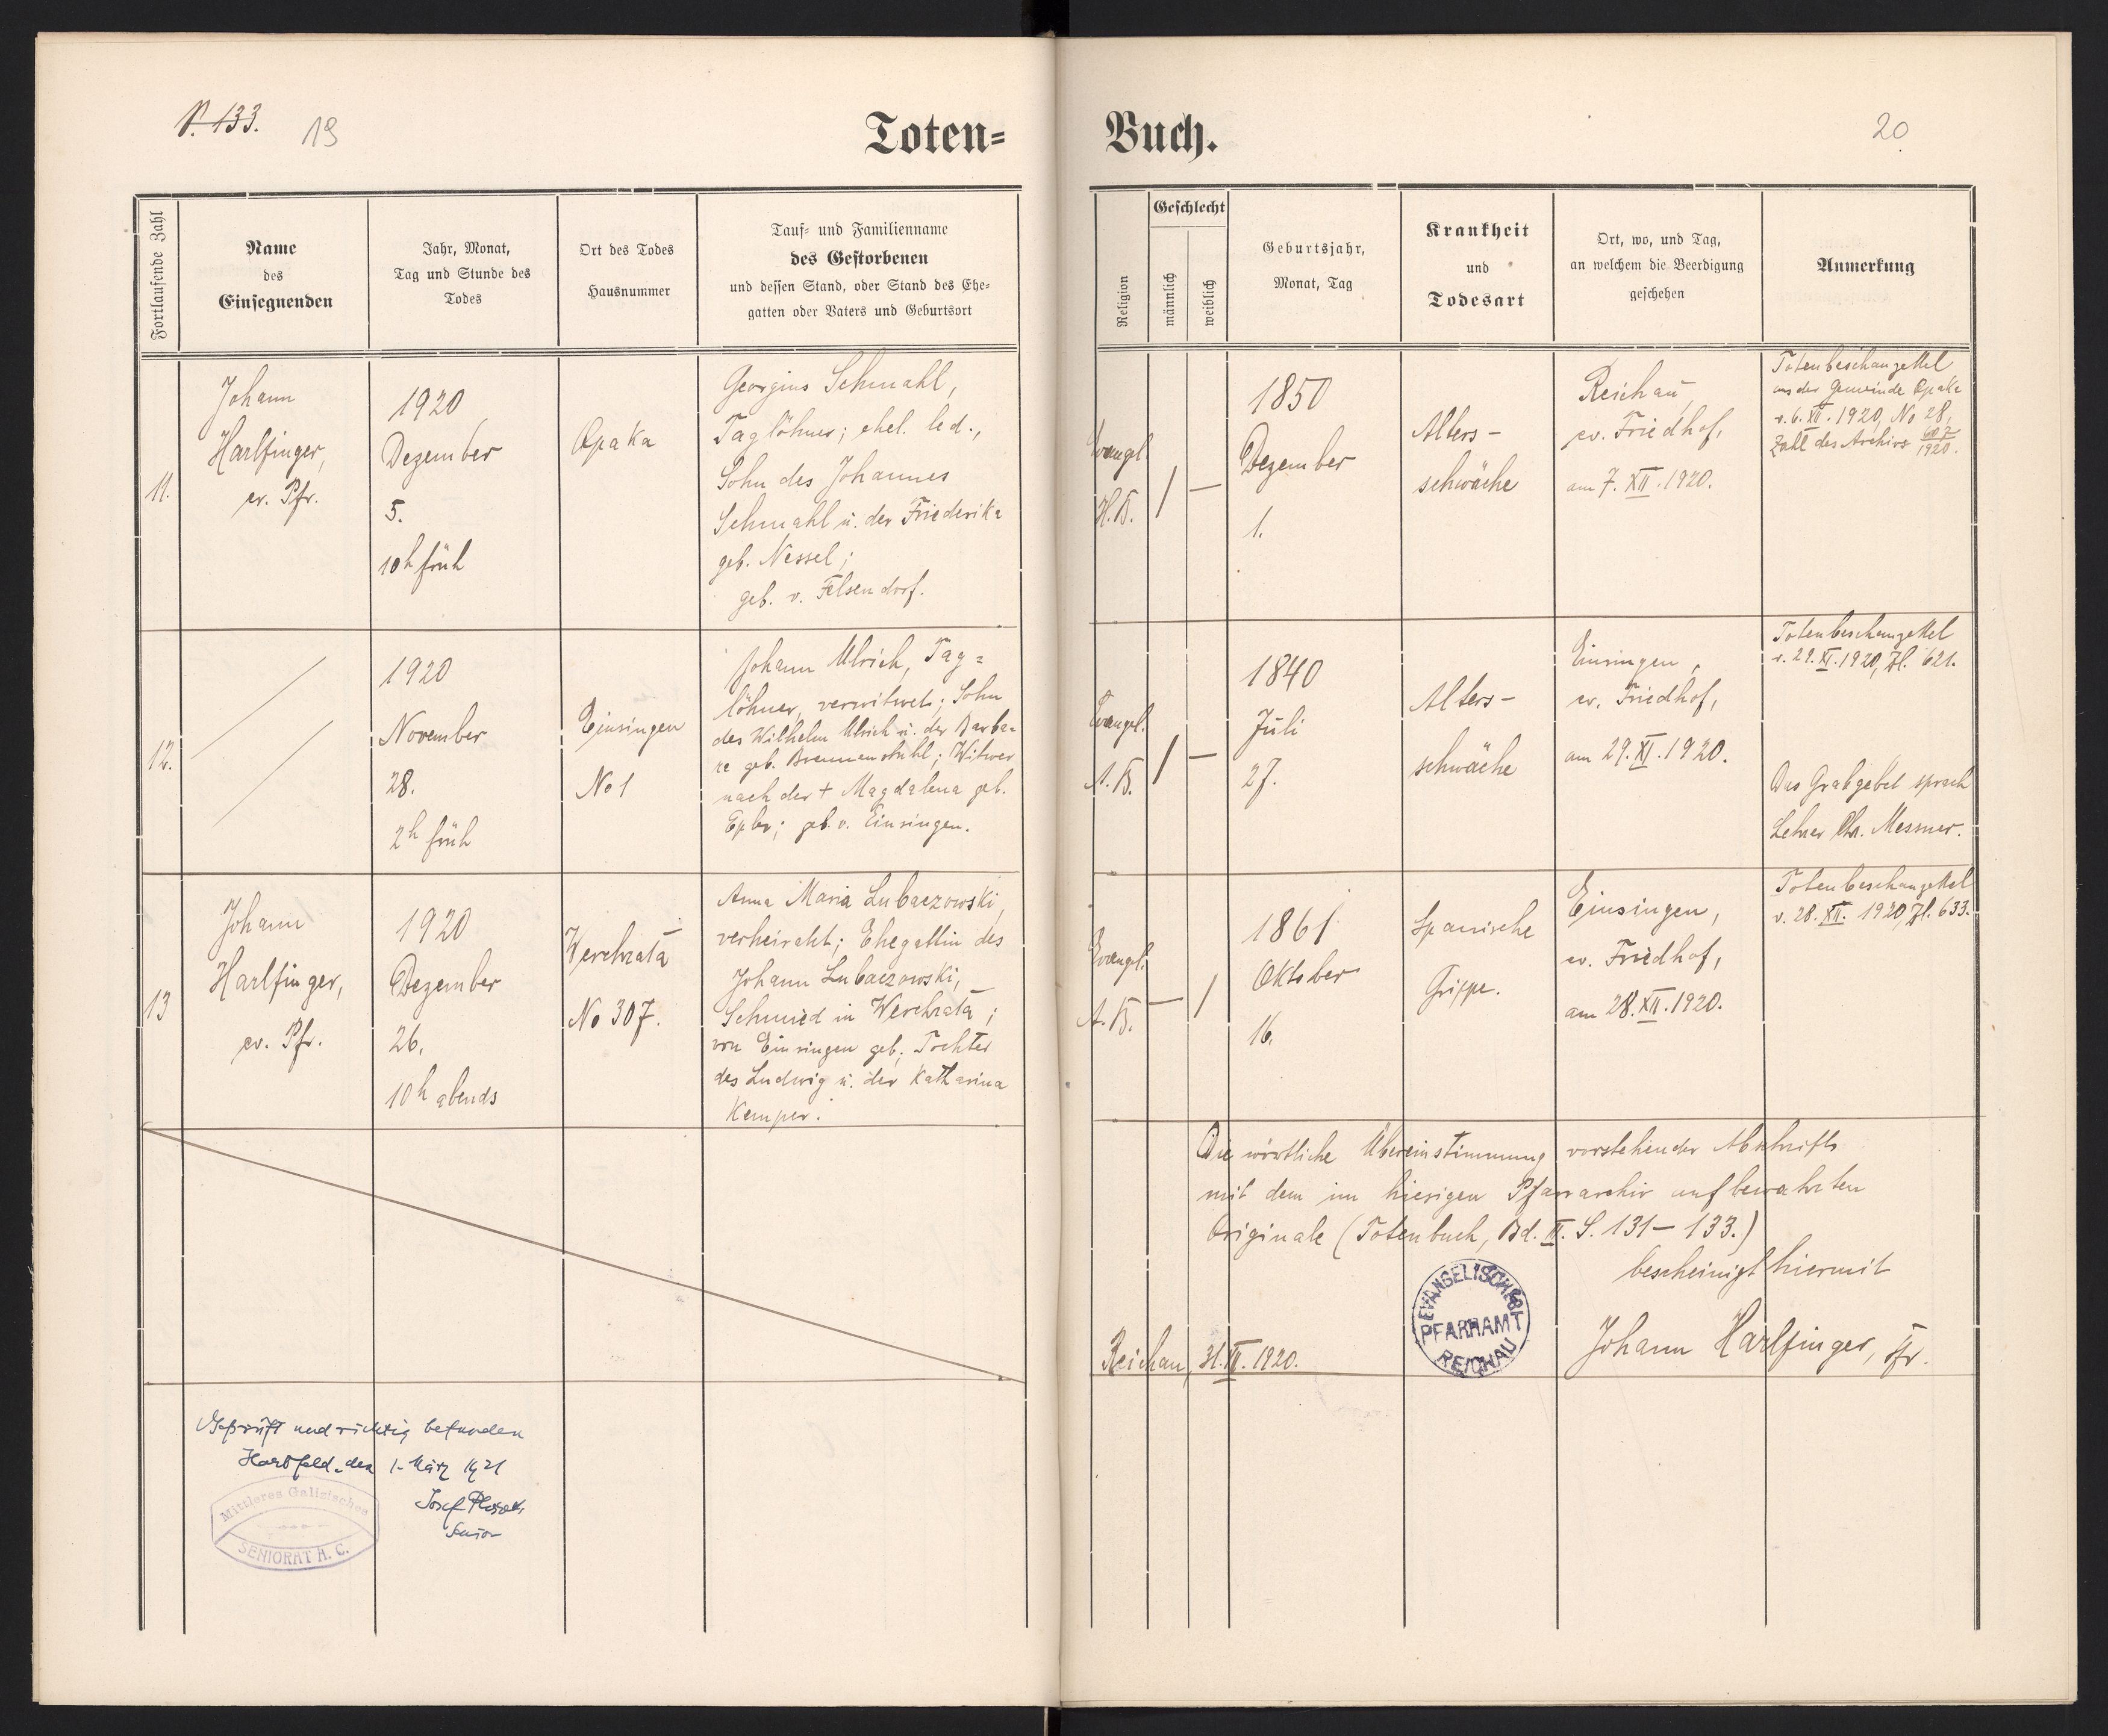 S. 133.
19
Toten=
Fortlaufende Zahl
Name
des
Einsegnenden
Jahr, Monat,
Tag und Stunde des
Todes
Ort des Todes
Hausnummer
Tauf= und Familienname
des Gestorbenen
und dessen Stand, oder Stand des Ehe=
gatten oder Vaters und Geburtsort
11.
Johann
Harlfinger,
ev. Pfr.
1920
Dezember
5.
10h früh
Opaka
Georgius Schmahl,
Taglöhner; ehel. led.,
Sohn des Johannes
Schmahl u. der Friederika
geb. Nessel;
geb. v. Felsendorf.
12.
1920
November
28.
2h früh
Einsingen
No 1
Johann Ulrich, Tag=
löhner, verwitwet; Sohn
des Wilhelm Ulrich u. der Barba=
ra geb. Brennenstuhl; Witwer
nach der + Magdalena geb.
geb. v. Einsingen.
13
Johann
Harlfinger,
ev. Pfr.
1920
Dezember
26.
10h abends
Werchrata
No 307.
Anna Maria Lubaczowski,
verheiratet; Ehegattin des
Johann Lubaczowski,
Schmied in Werchrata;
von Einsingen geb; Tochter
des Ludwig u. der Katharina
Kemper.
Geprüft und richtig befunden
Hartfeld, den 1. März 1921
Josef
Senior
Mittleres Galizisches
SENIORAT A. C.
Buch.
20
Religion
Geschlecht
männlich
weiblich
Geburtsjahr,
Monat, Tag
Krankheit
und
Todesart
Ort, wo, und Tag,
an welchem die Beerdigung
geschehen
Anmerkung
Evangel.
H.B.
/
—
1850
Dezember
1.
Alters-
schwäche
Reichau,
ev. Friedhof,
am 7. XII. 1920.
Totenbeschauzettel
aus der Gemeinde Opaka
v. 6. XII. 1920, No 28,
Zahl des Archivs 607/1920.
Evangel.
A.B.
/
—
1840
Juli
27.
Alters-
schwäche
Einsingen,
ev. Friedhof,
am 29. XI. 1920.
Totenbeschauzettel
v. 29. XI. 1920, Zl. 621.
Das Grabgebet sprach
Lehrer Chr. Messner.
Evangel.
A.B.
—
/
1861
Oktober
16.
Spanische
Grippe.
Einsingen,
ev. Friedhof,
am 28. XII. 1920.
Totenbeschauzettel
v. 28. XII. 1920, Zl. 633.
Die wörtliche Übereinstimmung vorstehender Abschrift
mit dem im hiesigen Pfarrarchiv aufbewahrten
Originale (Totenbuch, Bd. II. S. 131 - 133.)
bescheinigt hiermit
EVANGELISCHES
PFARRAMT
REICHAU
Reichau, 31. XII. 1920.
Johann Harlfinger, Pfr.